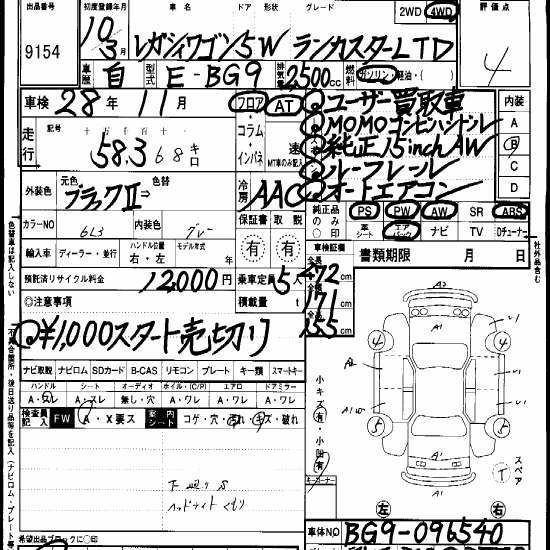 出品番号 初度登録年月 車名 ドア 形状 グレード 2WD 4WD 評価点
9154 10年3月 レガシィワゴン 5W ランカスターLTD 4
車歴 自 型式 E-BG9 排気量 2500cc 燃料 ガソリン・軽油・( )
車検 28年 11月 フロア AT ユーザー買取車 内装
走行 記号 58.368キロ + コラム + インパネ 速 MT車のみ記入 MOMOコンビハンドル A
純正15inchAW B
ルーフレール C
オートエアコン D
外装色 元色 ブラックⅡ⇒ 色替 冷房 AAC
カラーNO 613 内装色 グレー 保証書 取説 純正品のみ○印 PS PW AW SR ABS
有 有 サンルーフ エアバック ナビ TV Dチューナー
輸入車 ディーラー・並行 ハンドル位置 右・左 モデル年式 年 車検証欄 書類期限 月 日
社外品含む
預託済リサイクル料金 12,000円 乗車定員 5人 全長 472cm
◎注意事項 積載量 t 171cm
¥1,000スタート売切り 155cm
ナビ取説 ナビロム SDカード B-CAS リモコン プレート キー類 スマートキー
ハンドル シート オーディオ ホイル・(C/P) エアロ ドアミラー
A・スレ A・スレ 無し・穴 A・ワレ A・ワレ A・ワレ
検査員記入 FW A・X要ス 室内シート コゲ・穴・汚れ・キズ・破れ
下廻りS
ヘッドライトくもり
小キズ(有)・小凹(有)
A2
A1
4 4
U1
A1
5 5
U1
A1
T スペア
左 右
車体NO BG9-096540
希望出品ブロックに○印
色替車は記入しない
不具合箇所・後日送り品等を記入(ナビロム・プレート等)